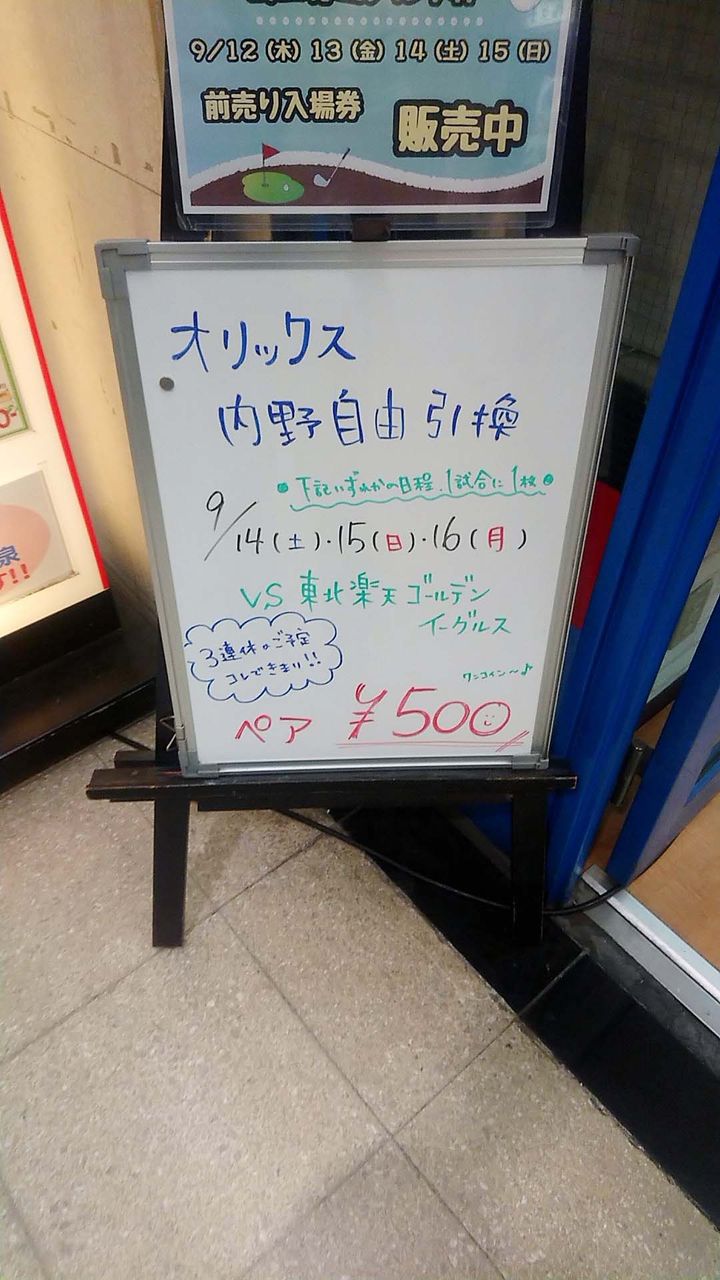 9/12(木) 13(金) 14(土) 15(日)
前売り入場券
販売中
オリックス
内野自由引換
●下記いずれかの日程、1試合に1枚●
9/14(土)・15(日)・16(月)
VS 東北楽天ゴールデン
イーグルス
3連休のご予定
コレできまり!!
ワンコイン〜♪
ペア ¥500
泉
!!